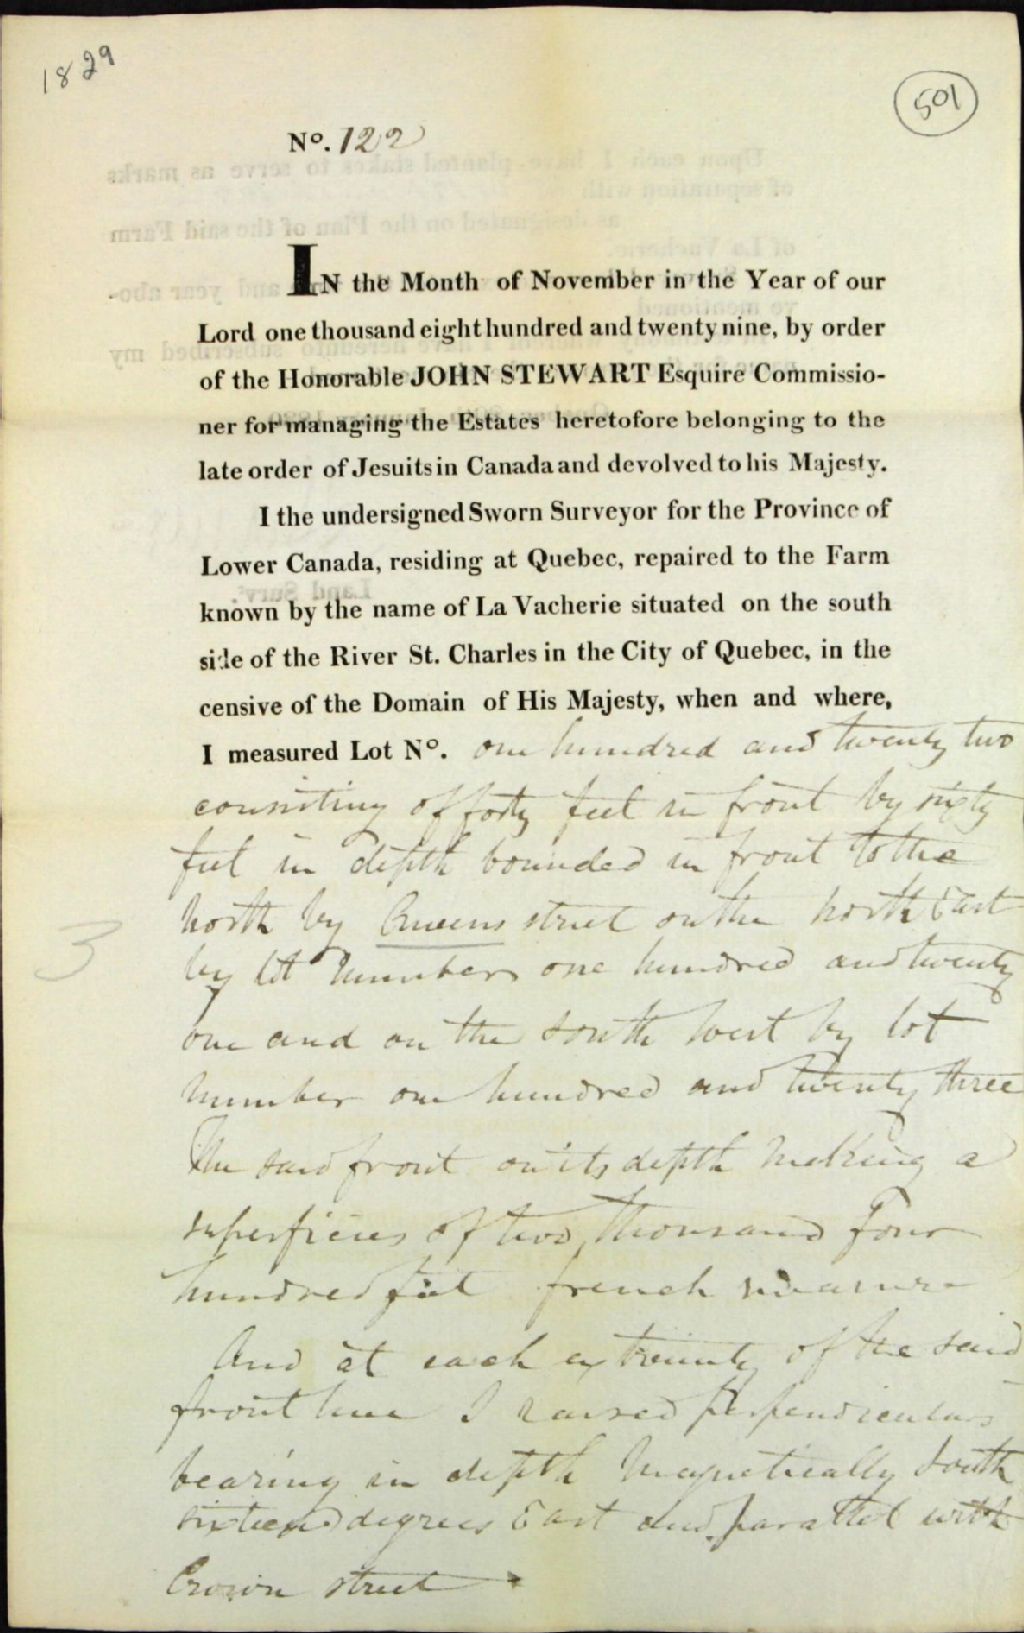 1829
501
No. 122
IN the Month of November in the Year of our
Lord one thousand eight hundred and twenty nine, by order
of the Honorable JOHN STEWART Esquire Commissio-
ner for managing the Estates heretofore belonging to the
late order of Jesuits in Canada and devolved to his Majesty.
I the undersigned Sworn Surveyor for the Province of
Lower Canada, residing at Quebec, repaired to the Farm
known by the name of La Vacherie situated on the south
side of the River St. Charles in the City of Quebec, in the
censive of the Domain of His Majesty, when and where,
I measured Lot No. one hundred and twenty two
consisting of forty feet in front by sixty
feet in depth bounded in front to the
north by Queens street on the north East
by lot number one hundred and twenty
one and on the south west by lot
number one hundred and twenty three
The said front on its depth making a
superficies of two thousand four
hundred feet french measure
And at each extremity of the said
front line I raised perpendiculars
bearing in depth magnetically South
sixteen degrees East and parallel with
Crown street
3